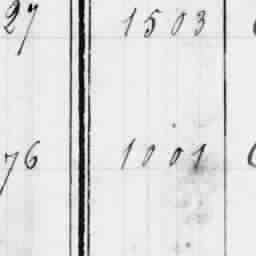 27 1503
76 1001